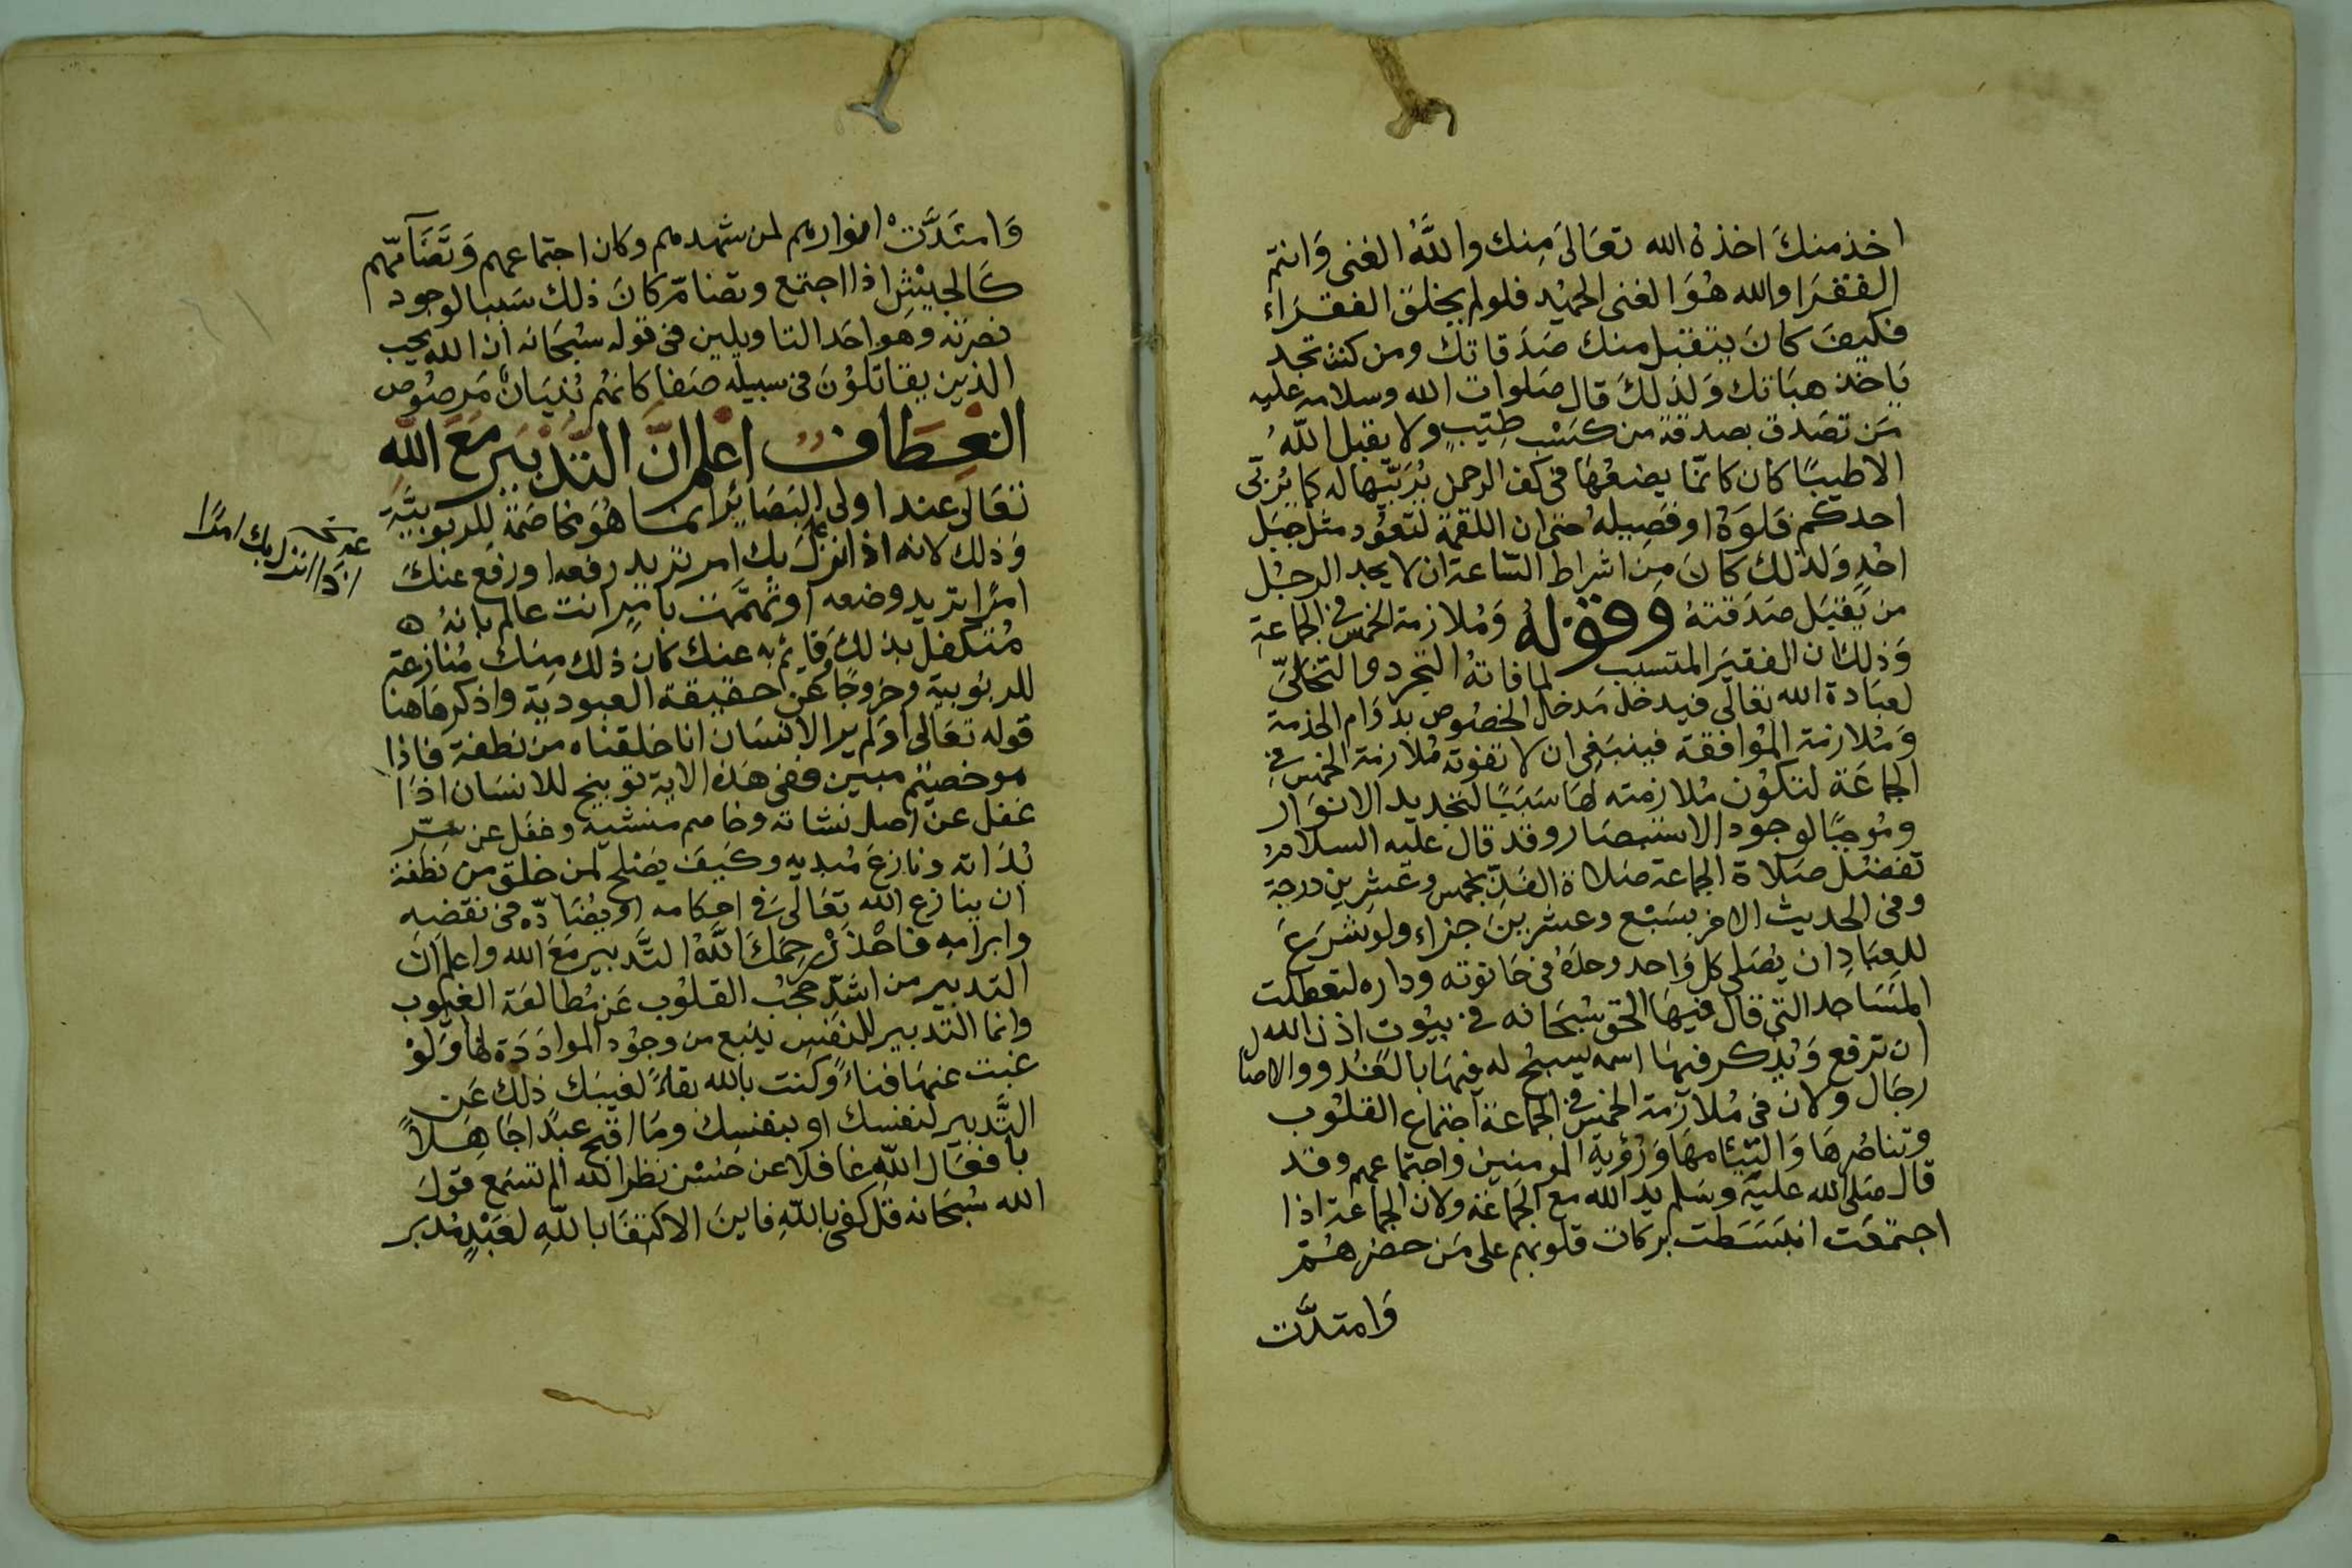 اخذ منكَ اخذهُ الله تعَالىَ مِنك واللّهُ الغنى وَانتم
الفقرَا والله هُوَ الغنى الحميْد فلولم يخلق الفقرَاء
فكيفَ كانَ يتقبل منك صَدَقاتك ومن كنت تجد
يَاخذ هبَاتك وَلذلكَ قال صَلوات الله وسلامه عليه
مَن تصَدق بصدقة من كسْب طيّبٍ ولا يقبل اللّهُ
الاطيبًا كان كانمّا يضعُهَا فى كف الرحمن يُرَبّيها له كما يُرَبّى
احدكم فَلوَهُ اوفَصِيلهُ حتى ان اللقمة لتعُود مثل جَبَل
احُدٍ وَلذلك كانَ مِن اشراط السّاعة ان لا يجد الرجُل
من يَقبَل صَدَقتهُ وقولهُ وَمُلازمة الخمس فى الجماعةِ
وَذلك ان الفقيرَ المتسبب لما فاتهُ التجرد والتخلىّ
لعبَادة الله تعَالى فيدخل مَدخل الخصُوص بدوَام الخدمة
وَمُلازمة المُوافقة فينبَغى ان لا تفوته مُلازمة الخمس فى
الجماعَة لتكوُن مُلازمته لهَا سَبَبًا لتجديد الانوَار
ومُوجبًا لوجود الاستبصَار وقد قال عليه السلامُ
تفضُل صَلاة الجماعة صَلاة الفَذّ بخمس وعشرين درجة
وفى الحديث الاخر بسَبْع وعشرينَ جزاء ولوشرَعَ
للعِبَادِ ان يُصَلى كل وَاحد وحدَهُ فى حَانوته وداره لتعطلت
المسَاجد التى قال فيهَا الحق سُبحَانه فى بيُوت اذن الله
ان ترفع وَيُذكر فيهَا اسمه يسبحُ له فيهَا بالغُدو والاصال
رجَال ولان فى مُلازمة الخمس فى الجماعة اجتماع القلوُب
وتناصُرهَا وَالتِئَامهَا وَرُؤية المومنين واجتماعهم وقد
قال صَلى الله عليْه وسَلم يد الله مع الجَماعَة ولان الجماعة اذا
اجتمعَت انبسَطت بركات قلوبهم على مَن حضرهُمْ
وَامتدَّت
وَامتَدَّتْ انوارهم لمن شهدهم وكان اجتماعهم وَتضَامّهم
كَالجيْشِ اذا اجتمع وتضامّ كانَ ذلك سَببا لوجود
نصرته وهواحَد التاويلين فى قوله سُبْحَانه ان الله يحب
الذين يقاتلوُنَ فى سبيله صَفا كانهُم بُنيَانٌ مَرصُوص
انعطاف اعلم انَّ التَّدبيرَ مَعَ اللّهِ
تعَالى عند اولى البَصَائر انما هُوَ مخاصَمة للربوبيَّةِ
وَذلك لانه اذا انزلَ بك امر تريد رفعه اورفع عنكَ
امرًا تريد وضعه اوتهمّمت بامرٍ انت عالم بانهُ
مُتكفل بذلك قايم به عنك كان ذلك منك مُنازعة
للربوُبية وخروجًا عن حقيقة العبودية واذكرهَاهنا
قوله تعَالى اوَلم ير الانسَان انا خلقناه من نطفة فاذا
هو خصيم مبين ففى هَذه الاية توبيخ للانسَان اذا
غفل عن اصل نشاته وخاصم منشيه وغفل عن سِرّ
بُدَاته ونازعَ مُبديهِ وكيَف يصَلح لمن خلق من نطفة
ان ينازع الله تعَالى فى احكامه اويُضَادّه فى نقضِهِ
وابرَامِهِ فاحْذَرْ رحمكَ اللّهُ التَّدبير مَعَ الله واعلم ان
التدبير من اشدّ حجُب القلوُب عَن مُطالعَة الغيُوب
وانما التدبير للنفسِ ينبع من وجُود الموادَدَة لها وَلَوْ
غبتَ عنهَا فناءً وكنت بالله بقاءً لغيبَك ذلك عَن
التَّدبير لنفسك او بنفسك ومَا اقبح عبدًا جَاهِلاً
بافعَال اللّهِ غافلا عن حُسْن نظر الله الم تسمَع قولَ
الله سُبْحَانه قل كفى باللّهِ فاينَ الاكتفَا باللّهِ لعَبْدٍ مُدبر
اذا انزل بك امرًا